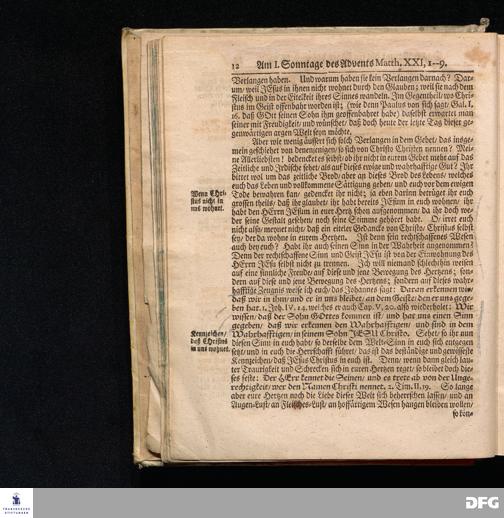 12 Am I. Sonntage des Advents Matth. XXI, 1--9.
Verlangen haben. Und warum haben sie kein Verlangen darnach? Dar-
um/ weil JEsus in ihnen nicht wohnet durch den Glauben; weil sie nach dem
Fleisch und in der Eitelkeit ihres Sinnes wandeln. Im Gegentheil/ wo Chri-
stus im Geist offenbahr worden ist; (wie denn Paulus von sich saget/ Gal. I,
16. daß GOtt seinen Sohn ihm geoffenbahret habe) daselbst erwartet man
seiner mit Freudigkeit/ und wünschet/ daß doch heute der letzte Tag dieser ge-
genwärtigen argen Welt seyn möchte.
Aber wie wenig äussert sich solch Verlangen in dem Gebet/ das insge-
mein geschiehet von denenjenigen/ so sich von Christo Christen nennen? Mei-
ne Allerliebsten! bedencket es selbst/ ob ihr nicht in eurem Gebet mehr auf das
Zeitliche und Irdische sehet/ als auf dieses ewige und wahrhafftige Gut? Ihr
bittet wol um das zeitliche Brod/ aber an dieses Brod des Lebens/ welches
euch das Leben und vollkommene Sättigung geben/ und euch vor dem ewigen
Tode bewahren kan/ gedencket ihr nicht; ja eben darinn betrüget ihr euch
grossen theils/ daß ihr glaubet/ ihr habt bereits JEsum in euch wohnen/ ihr
habt den HErrn JEsum in eurer Hertz schon aufgenommen/ da ihr doch we-
der seine Gestalt gesehen/ noch seine Stimme gehöret habt. O! irret euch
nicht also/ meynet nicht/ daß ein eiteler Gedancke von Christo/ Christus selbst
sey/ der da wohne in eurem Hertzen. Ist denn sein rechtschaffenes Wesen
auch bey euch? Habt ihr auch seinen Sinn in der Wahrheit angenommen?
Denn der rechtschaffene Sinn und Geist JEsu ist von der Einwohnung des
HErrn JEsu selbst nicht zu trennen. Ich will niemand schlechthin weisen
auf eine sinnliche Freude/ auf diese und jene Bewegung des Hertzens; son-
dern auf diese und jene Bewegung des Hertzens; sondern auf dieses wahr-
hafftige Zeugniß weise ich euch/ das Johannes saget: Daran erkennen wir/
daß wir in ihm/ und er in uns bleibet/ an dem Geiste/ den er uns gege-
ben hat. 1. Joh. IV. 14. welches er auch Cap. V, 20. also wiederholet: Wir
wissen/ daß der Sohn GOttes kommen ist/ und hat uns einen Sinn
gegeben/ daß wir erkennen den Wahrhafftigen/ und sind in dem
Wahrhafftigen/ in seinem Sohn JESU Christo. Sehet/ so ihr nun
diesen Sinn in euch habt/ so derselbe dem Welt-Sinn in euch sich entgegen
setzt/ und in euch die Herrschafft führet/ das ist das beständige und gewisseste
Kennzeichen/ daß JEsus Christus in euch ist. Denn/ wenn dann gleich lau-
ter Traurigkeit und Schrecken sich in euren Hertzen reget/ so bleibet doch die-
ses feste: Der HErr kennet die Seinen/ und es trete ab von der Unge-
rechtigkeit/ wer den Namen Christi nennet. 2. Tim. II, 19. So lange
aber eure Hertzen noch die Liebe dieser Welt sich beherrschen lassen/ und an
Augen-Lust/ an Fleisches-Lust/ an hoffärtigem Wesen hangen bleiben wollen/
so kön-
Wenn Chri-
stus nicht in
uns wohnet.
Kennzeichen/
daß Christus
in uns wohnet.
FRANCKESCHE
STIFTUNGEN
DFG